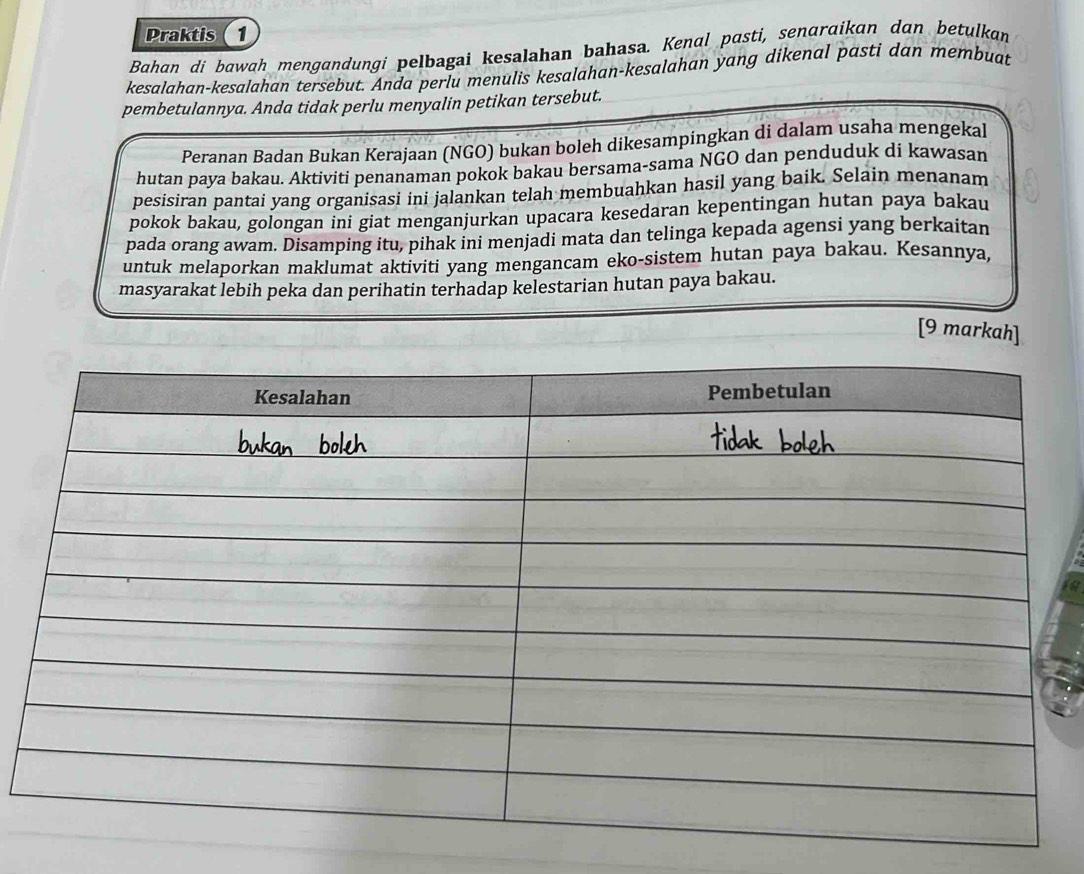 Praktis 1
Bahan di bawah mengandungi pelbagai kesalahan bahasa. Kenal pasti, senaraikan dan betulkan
kesalahan-kesalahan tersebut. Anda perlu menulis kesalahan-kesalahan yang dikenal pasti dan membuat
pembetulannya. Anda tidak perlu menyalin petikan tersebut.
Peranan Badan Bukan Kerajaan (NGO) bukan boleh dikesampingkan di dalam usaha mengekal
hutan paya bakau. Aktiviti penanaman pokok bakau bersama-sama NGO dan penduduk di kawasan
pesisiran pantai yang organisasi ini jalankan telah membuahkan hasil yang baik. Selain menanam
pokok bakau, golongan ini giat menganjurkan upacara kesedaran kepentingan hutan paya bakau
pada orang awam. Disamping itu, pihak ini menjadi mata dan telinga kepada agensi yang berkaitan
untuk melaporkan maklumat aktiviti yang mengancam eko-sistem hutan paya bakau. Kesannya,
masyarakat lebih peka dan perihatin terhadap kelestarian hutan paya bakau.
[9 markah]
Kesalahan Pembetulan
bukan boleh tidak boleh